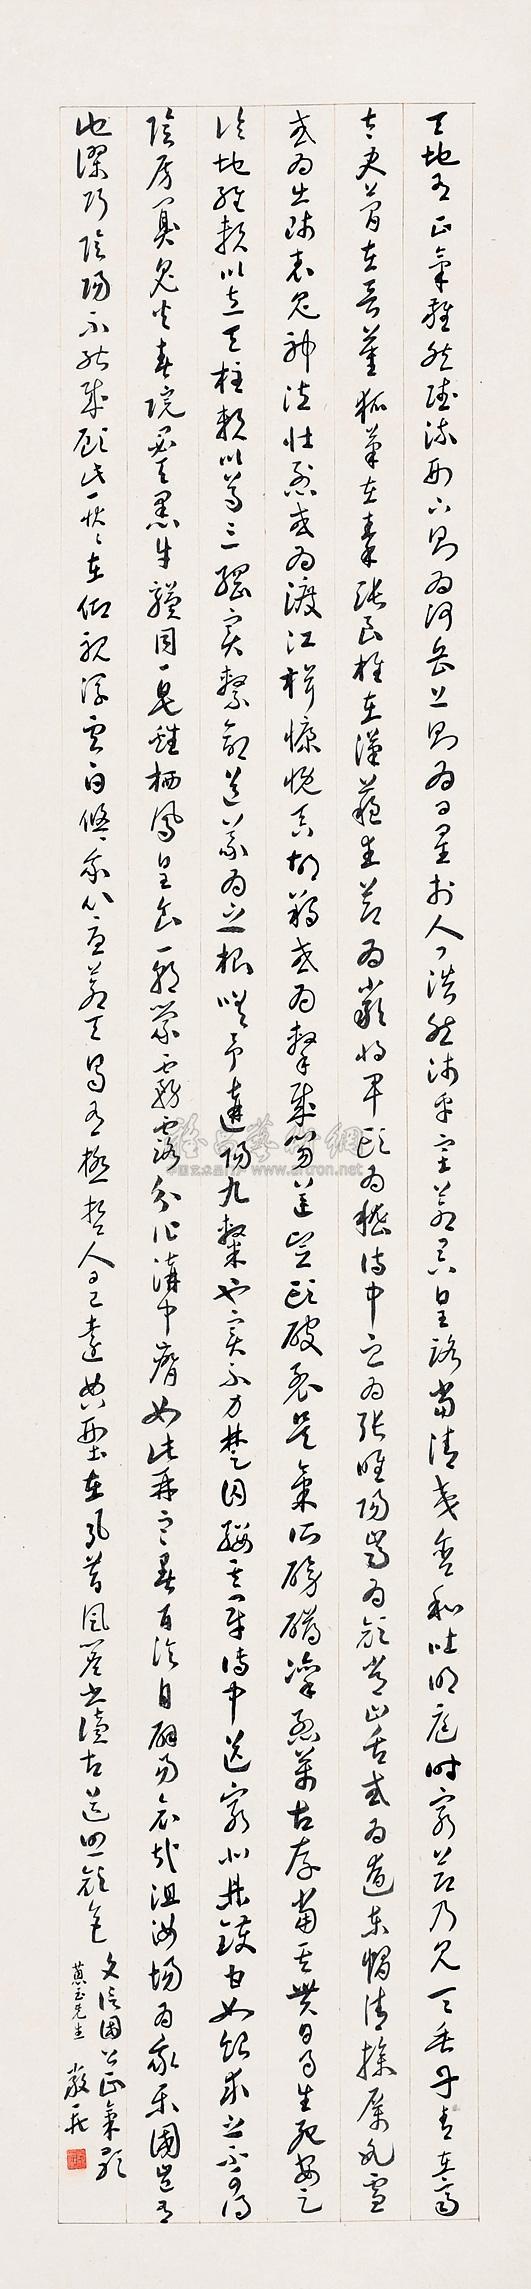 天地有正氣雜然賦流形下則為河岳上則為日星於人曰浩然沛乎塞蒼冥皇路當清夷含和吐明庭時窮節乃見一一垂丹青在齊
太史簡在晉董狐筆在秦張良椎在漢蘇武節為嚴將軍頭為嵇侍中血為張睢陽齒為顏常山舌或為遼東帽清操厲冰雪
或為出師表鬼神泣壯烈或為渡江楫慷慨吞胡羯或為擊賊笏逆豎頭破裂是氣所磅礴凜烈萬古存當其貫日月生死安足
論地維賴以立天柱賴以尊三綱實繫命道義為之根嗟予遘陽九隸也實不力楚囚纓其冠傳車送窮北鼎鑊甘如飴求之不可得
陰房闃鬼火春院閟天黑牛驥同一皂雞栖鳳皇食一朝蒙霧露分作溝中瘠如此再寒暑百沴自辟易哀哉沮洳場為我樂國豈有
他繆巧陰陽不能賊顧此耿耿在仰視浮雲白悠悠我心憂蒼天曷有極哲人日已遠典型在夙昔風簷書讀古道照顏色
文信國公正氣歌
蕙玉先生
雅昌藝術網
中国艺术品门户 www.artron.net